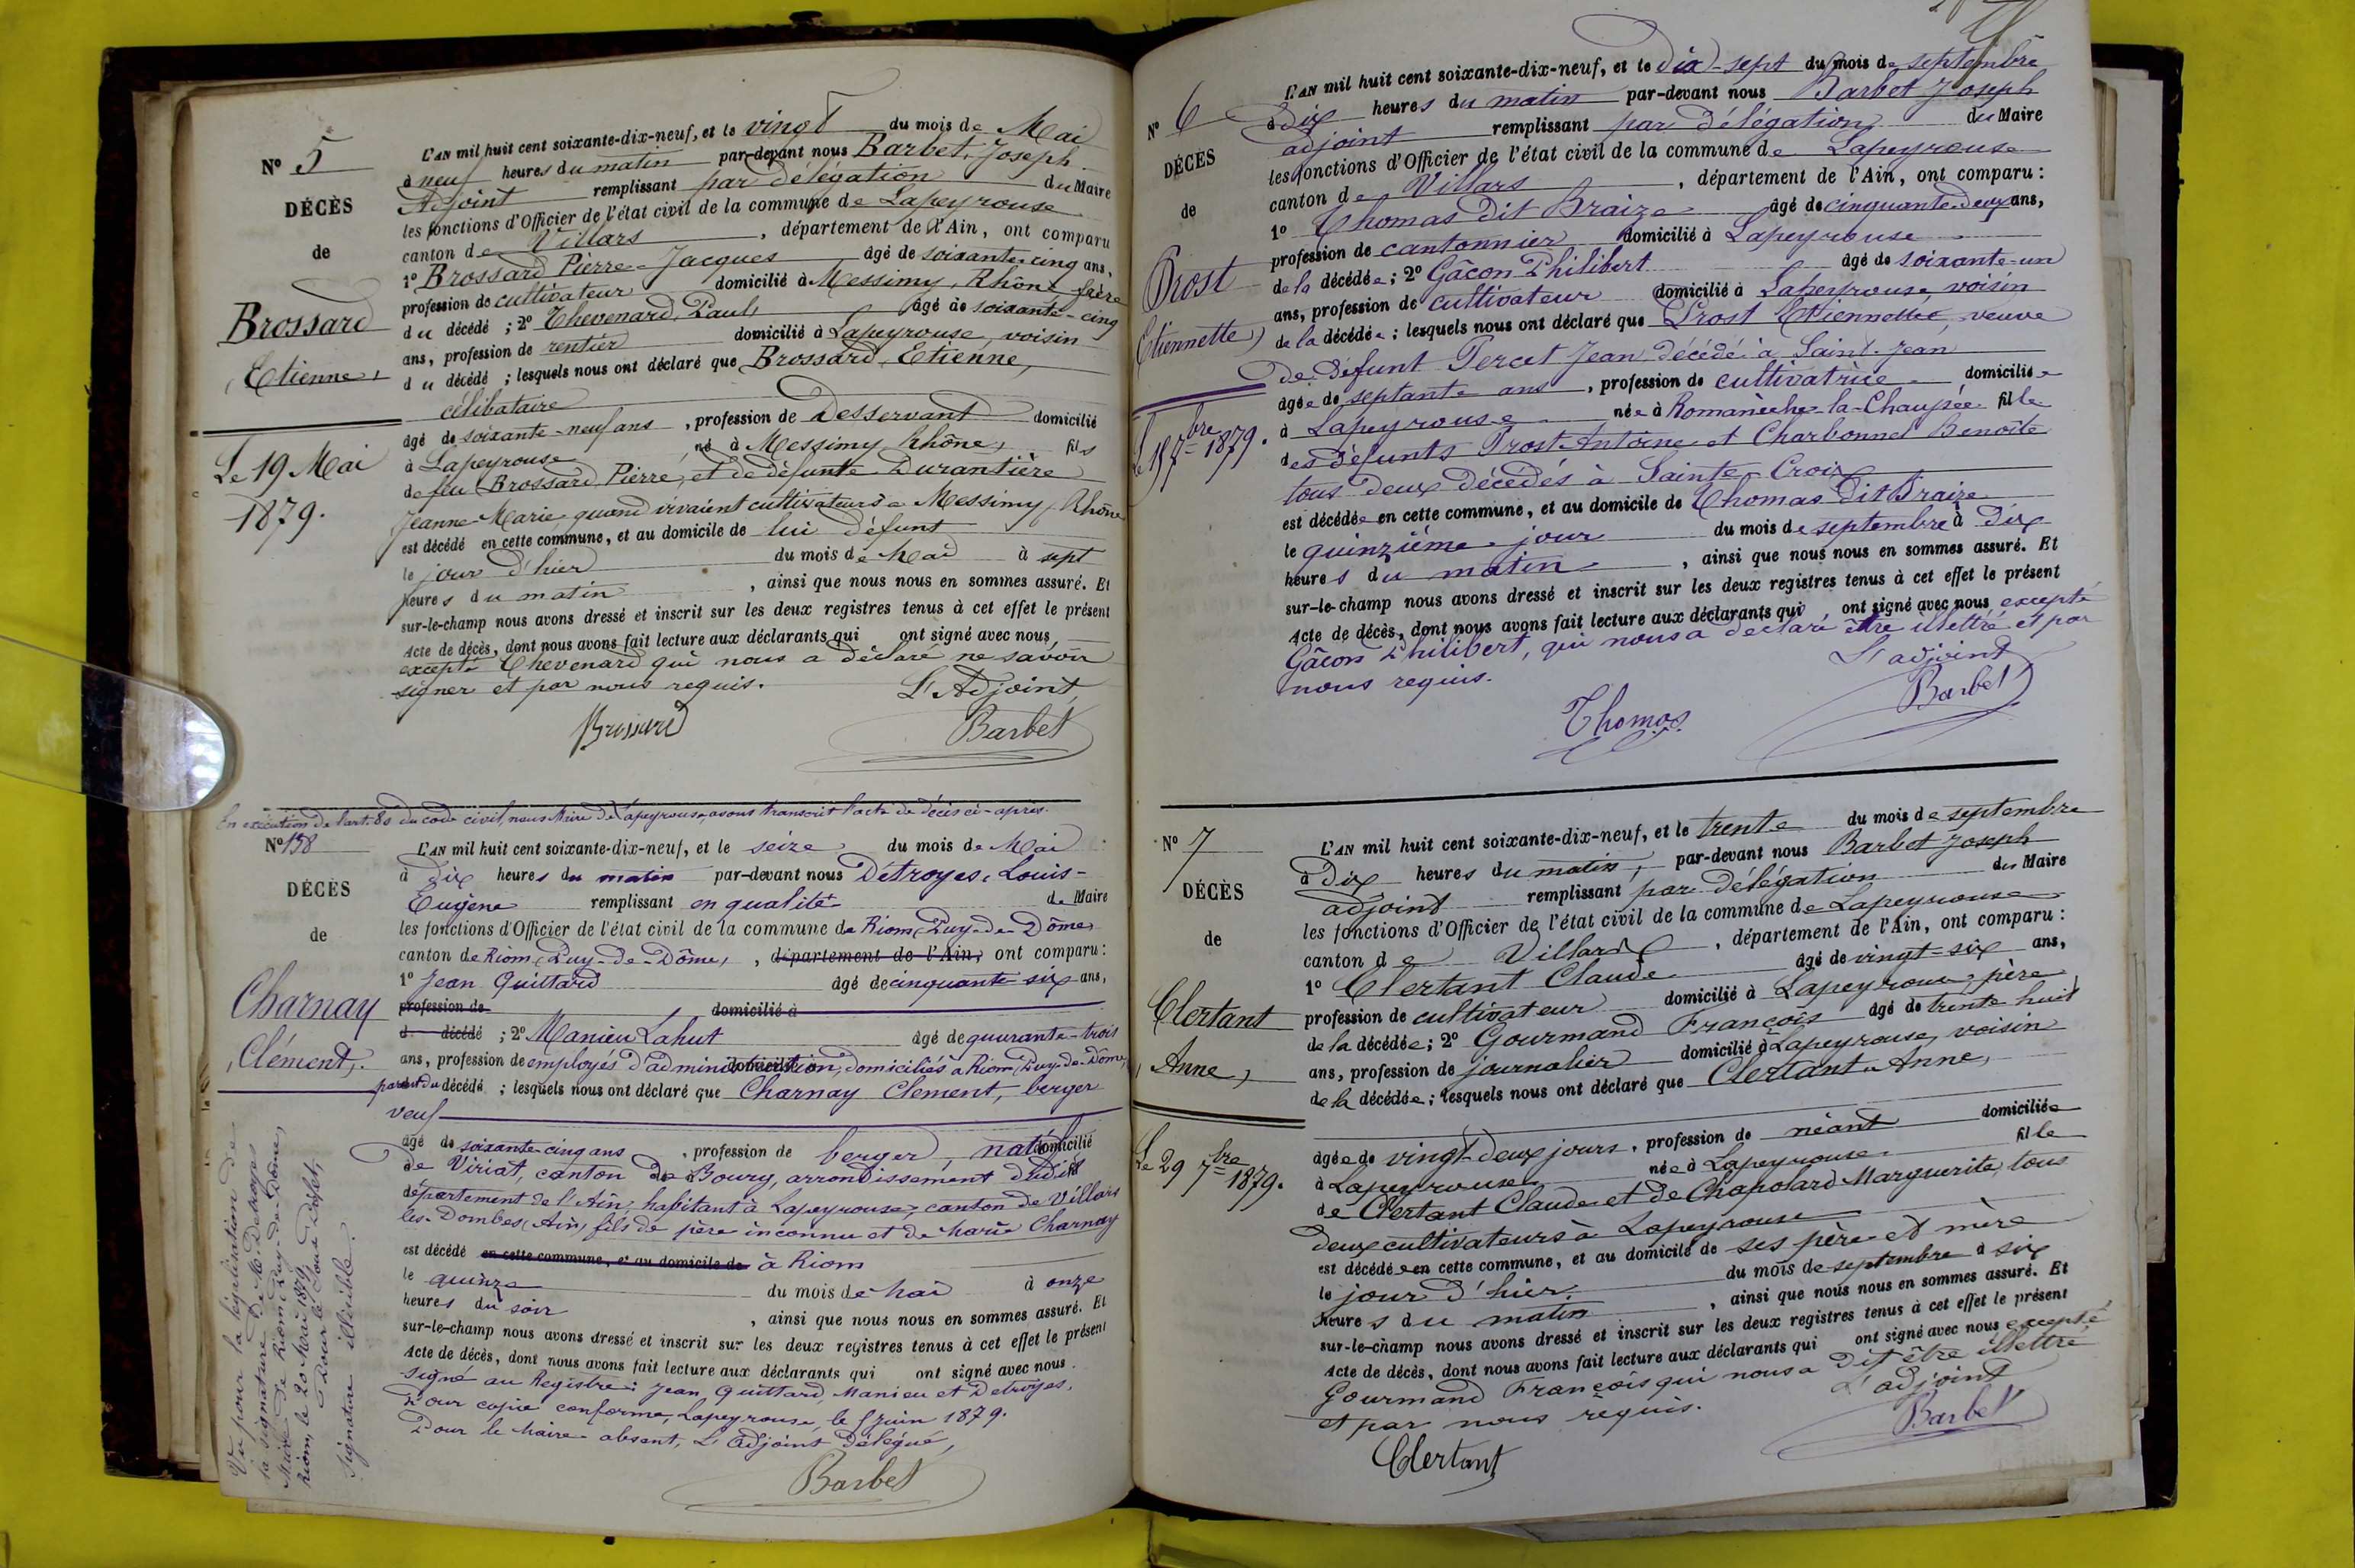 N° 5
DÉCÈS
de
Brossard
Etienne,
Le 19 Mai
1879.
L'AN mil huit cent soixante-dix-neuf, et le vingt du mois de Mai
à neuf heures du matin par-devant nous Barbet, Joseph
Adjoint remplissant par délégation du Maire
les fonctions d'Officier de l'état civil de la commune de Lapeyrouse
canton de Villars, département de l'Ain, ont comparu
1° Brossard Pierre-Jacques âgé de soixante-cinq ans,
profession de cultivateur domicilié à Messimy, Rhône frère
du décédé ; 2° Thevenard, Paul, âgé de soixante-cinq
ans, profession de rentier domicilié à Lapeyrouse, voisin
du décédé ; lesquels nous ont déclaré que Brossard, Etienne,
célibataire
âgé de soixante-neuf ans, profession de Desservant domicilié
à Lapeyrouse né à Messimy Rhône, fils
de feu Brossard Pierre, et de défunte Durantière
Jeanne-Marie quand vivaient cultivateurs à Messimy, Rhône
est décédé en cette commune, et au domicile de lui défunt
le jour d'hier du mois de Mai à sept
heures du matin, ainsi que nous nous en sommes assuré. Et
sur-le-champ nous avons dressé et inscrit sur les deux registres tenus à cet effet le présent
Acte de décès, dont nous avons fait lecture aux déclarants qui ont signé avec nous,
excepté Thevenard qui nous a déclaré ne savoir
signer et par nous requis.
L'Adjoint,
Brossard
Barbet
En exécution de l'art. 80 du code civil, nous Maire de Lapeyrouse, avons transcrit l'acte de décès ci-après.
N° 158
DÉCÈS
de
Charnay
Clément,
L'AN mil huit cent soixante-dix-neuf, et le seize du mois de Mai
à Dix heures du matin par-devant nous Détroyes, Louis-
Eugène remplissant en qualité de Maire
les fonctions d'Officier de l'état civil de la commune de Riom, Puy-de-Dôme
canton de Riom, Puy-de-Dôme, département de l'Ain, ont comparu :
1° Jean Quittard âgé de cinquante six ans,
profession de domicilié à
d décédé ; 2° Manieu Lahut âgé de quarante-trois
ans, profession de employés d'administration, domiciliés à Riom Puy-de-Dôme,
du décédé ; lesquels nous ont déclaré que Charnay Clement, berger
veuf
âgé de soixante-cinq ans, profession de berger, natif domicilié
de Viriat, canton de Bourg, arrondissement dudit
département de l'Ain, habitant à Lapeyrouse, canton de Villars
les-Dombes, (Ain) fils de père inconnu et de Marie Charnay
est décédé en cette commune, et au domicile de à Riom
le quinze du mois de Mai à onze
heures du soir, ainsi que nous nous en sommes assuré. Et
sur-le-champ nous avons dressé et inscrit sur les deux registres tenus à cet effet le présent
Acte de décès, dont nous avons fait lecture aux déclarants qui ont signé avec nous.
Signé au Registre : Jean, Quittard, Manieu et Detroyes.
Pour copie conforme, Lapeyrouse, le 5 juin 1879.
Pour le Maire absent, L'Adjoint Délégué,
Barbet
Vu pour la législation de
la signature de M. Detroyes
Maire de Riom, Puy-de-Dôme,
Riom, le 20 Mai 1879
Pour le Sous-Préfet,
Signature illisible.
N° 6
DÉCÈS
de
Prost
Etiennette,
Le 15 7bre 1879.
L'AN mil huit cent soixante-dix-neuf, et le Dix-sept du mois de septembre
à Dix heures du matin par-devant nous Barbet Joseph
adjoint remplissant par délégation du Maire
les fonctions d'Officier de l'état civil de la commune de Lapeyrouse
canton de Villars, département de l'Ain, ont comparu :
1° Thomas dit Braize âgé de cinquante-deux ans,
profession de cantonnier domicilié à Lapeyrouse
de la décédée ; 2° Gâcon Philibert âgé de soixante-un
ans, profession de cultivateur domicilié à Lapeyrouse, voisin
de la décédée ; lesquels nous ont déclaré que Prost Etiennette, veuve
de défunt Percet Jean décédé à Saint-Jean
âgée de septante ans, profession de cultivatrice domiciliée
à Lapeyrouse née à Romanèche-la-Chaussée fille
des défunts Prost Antoine et Charbonnet Benoite
tous deux décédés à Sainte-Croix
est décédée en cette commune, et au domicile de Thomas dit Braize
le quinzième jour du mois de septembre à Dix
heures du matin, ainsi que nous nous en sommes assuré. Et
sur-le-champ nous avons dressé et inscrit sur les deux registres tenus à cet effet le présent
Acte de décès, dont nous avons fait lecture aux déclarants qui, ont signé avec nous excepté
Gâcon Philibert, qui nous a déclaré être illettré et par
nous requis.
L'adjoint
Thomas
Barbet
N° 7
DÉCÈS
de
Clertant
Anne,
Le 29 7bre 1879.
L'AN mil huit cent soixante-dix-neuf, et le trente du mois de septembre
à Dix heures du matin, par-devant nous Barbet Joseph
adjoint remplissant par délégation du Maire
les fonctions d'Officier de l'état civil de la commune de Lapeyrouse
canton de Villard, département de l'Ain, ont comparu :
1° Clertant Claude âgé de vingt-six ans,
profession de cultivateur domicilié à Lapeyrouse, père
de la décédée ; 2° Gourmand François âgé de trente huit
ans, profession de journalier domicilié à Lapeyrouse, voisin
de la décédée ; lesquels nous ont déclaré que Clertant Anne,
âgée de vingt-deux jours, profession de néant domiciliée
à Lapeyrouse née à Lapeyrouse fille
de Clertant Claude et de Chapolard Marguerite, tous
deux cultivateurs à Lapeyrouse
est décédée en cette commune, et au domicile de ses père et mère
le jour d'hier du mois de septembre à six
heures du matin, ainsi que nous nous en sommes assuré. Et
sur-le-champ nous avons dressé et inscrit sur les deux registres tenus à cet effet le présent
Acte de décès, dont nous avons fait lecture aux déclarants qui ont signé avec nous excepté
Gourmand François qui nous a dit être illettré
et par nous requis.
L'adjoint
Clertant
Barbet